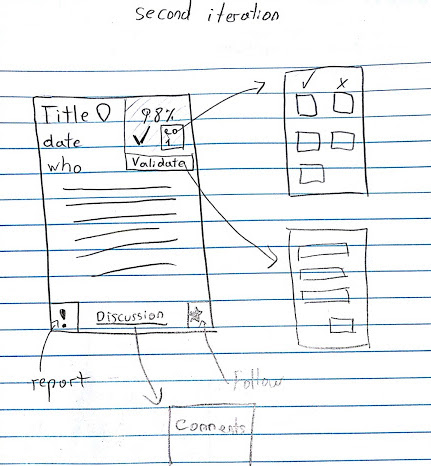 second iteration
Title
98%
date
who
Validate
!
Discussion
report
Follow
Comments